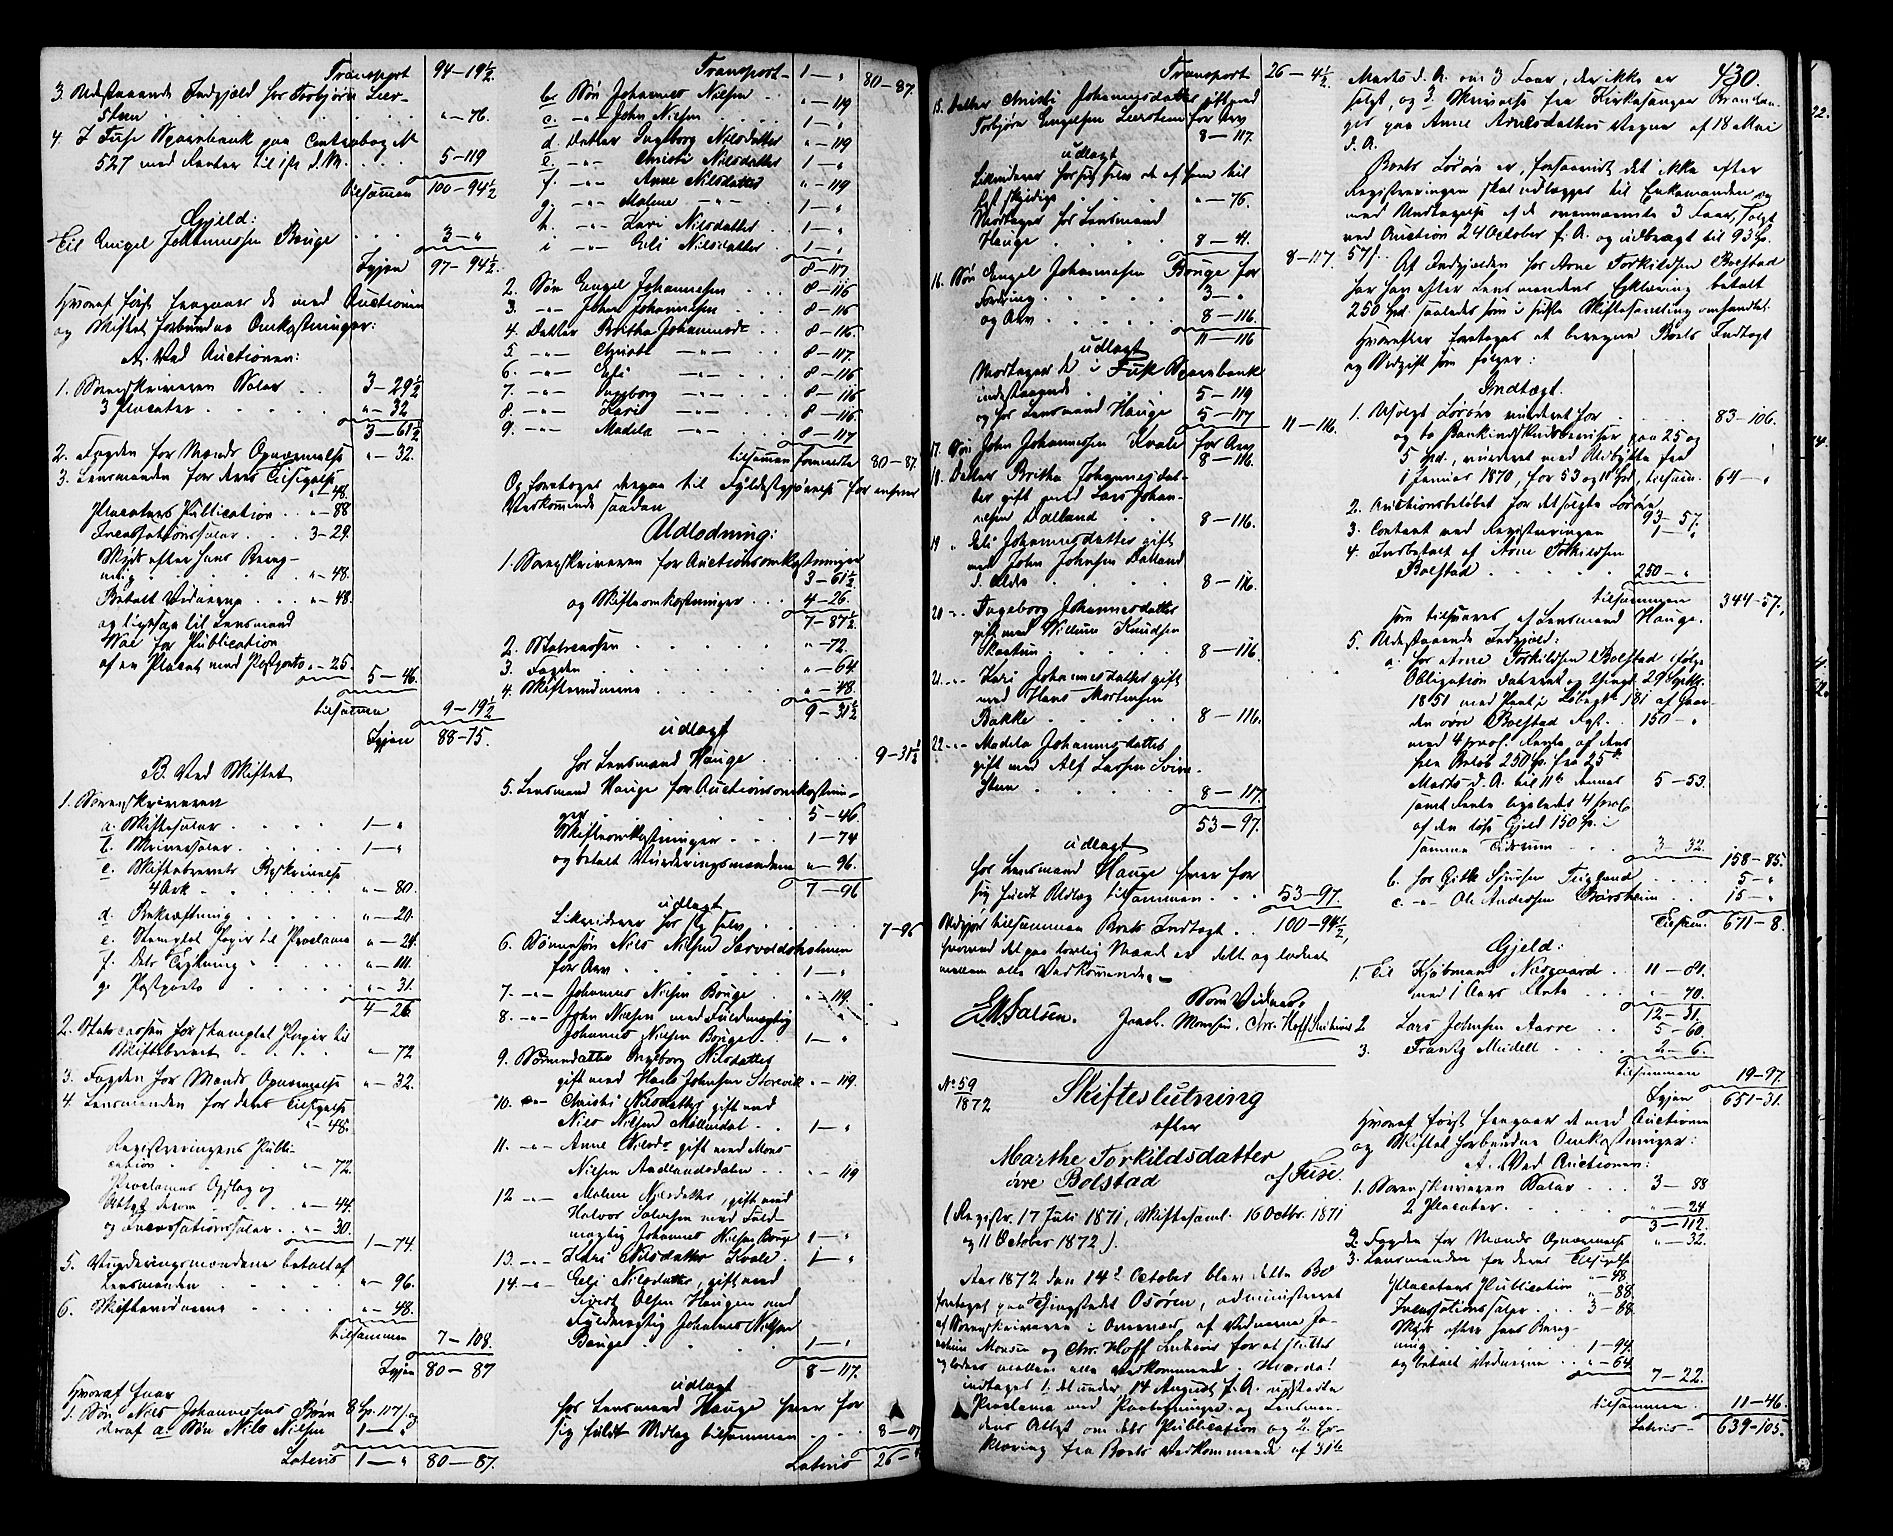 Transport 94-19½
3. Udestaaende Indgjæld hos Torbjørn Lier-
sten . . . "-76.
4. I Fuse Sparebank paa Contrabog No
527 med Renter til 1ste d. M. . . 5-119
tilsammen 100-94½
Gjeld:
Til Engel Johannessen Bouge . . . 3-"
Igjen 97-94½
Hvoraf først fragaaer de med Auctionen
og Skiftet forbundne Omkostninger:
A. Ved Auctionen:
1. Sorenskriveren Salær . . 3-29½
3 Placater . . . . "-32
3-61½
2. Fogden for Mænds Opnævnelse "-32.
3. Lensmanden for deres Tilsigelse
"-48.
Placaters Publication . . "-88
Incassationssalær . . . 3-29.
Skyds efter hans Bereg-
ning . . . . "-48.
Betalt Vidnerne . . . "-48.
og ligesaa til Lensmand
Næs for Publication
af en Placat med Postporto "-25.
5-46.
tilsammen 9-19½
Igjen 88-75.
B. Ved Skiftet
1. Sorenskriveren
a. Skiftesalær . . . . 1-"
b. Skriversalær . . . . 1-"
c. Skiftebrevets Beskrivelse
4 Ark . . . . "-80.
d. Bekræftning . . . . "-20.
e. Stemplet Papir til Proclama "-24.
f. Dets Trykning . . . "-111.
g. Postporto . . . "-31.
4-26
2. Statscassen for stemplet Papir til
Skiftebrevet . . . "-72
3. Fogden for Mænds Opnævnelse "-32.
4. Lensmanden for deres Tilsigelse
"-48.
Registreringens Publi-
cation . . . "-72.
Proclamas Opslag og
Attest derom . . "-44.
og Incassationssalær . . "-30.
1-74.
5. Vurderingsmændene betalt af
Lensmanden . . . "-96.
6. Skiftevidnerne . . . "-48.
tilsammen 7-108.
Igjen 80-87
Hvoraf faar
1. Søn Nils Johannessens Børn 8 Sp. 117/ og
deraf a. Søn Nils Nilsen 1-"
Lateris 1-" 80-87.
Transport 1-" 80-87.
b. Søn Johannes Nilsen . . "-119
c. -"- John Nilsen . . . 1-"
d. Datter Ingeborg Nilsdatter "-119
e. -"- Christi Nilsdatter 1-"
f. -"- Anne Nilsdatter "-119
g. -"- Malene -"- . . 1-"
h. -"- Kari Nilsdatter . 1-"
i -"- Eli Nilsdatter 1-"
8-117
2. Søn Engel Johannesen . . 8-116
3. -"- John Johannesen . . . 8-116
4. Datter Britha Johannesdr . . 8-116.
5. -"- Christi -"- . . 8-117.
6. -"- Eli -"- . . 8-116
7. -"- Ingeborg -"- . . 8-116
8. -"- Kari -"- . . 8-116.
9. -"- Madela -"- . . 8-117
tilsammen formeldte 80-87.
Og foretoges derpaa til Fyldestgjørelse for enhver
Vedkommende saadan
Udlodning:
1. Sorenskriveren for Auctionsomkostninger
3-61½
og Skifteomkostninger . . . 4-26.
7-87½
2. Statscassen . . . . "-72.
3. Fogden . . . . . "-64.
4. Skiftevidnerne . . . . "-48.
9-31½
udlagt
hos Lensmand Hauge . . . . 9-31½
5. Lensmand Hauge for Auctionsomkostnin-
ger . . . . 5-46.
Skifteomkostninger . . . 1-74
og betalt Vurderingsmændene "-96.
7-96
udlagt
Likviderer hos sig selv . . . 7-96
6. Sønnesøn Nils Nilsen Sævoldsholmen
for Arv . . . . 1-"
7. -"- Johannes Nilsen Bouge . . "-119.
8. -"- John Nilsen med Fuldmægtig
Johannes Nilsen Bouge . . 1-"
9. Sønnedatter Ingeborg Nilsdatter
gift med Hans Johnsen Storevik "-119.
10. -"- Christi Nilsdatter gift med
Nils Nilsen Møllerdal . . 1-"
11. -"- Anne Nilsdr gift med Mons
Nilsen Andlandsdalen . . "-119
12 -"- Malene Nilsdatter, gift med
Halvor Salvesen med Fuld-
mægtig Johannes Nilsen Bouge 1-"
13. -"- Kari Nilsdatter Kvale . 1-"
14. -"- Eli Nilsdatter, gift med
Sivert Olsen Haugen med
Fuldmægtig Johannes Nilsen
Bouge . . . . 1-"
8-117.
udlagt
hos Lensmand Hauge hver for
sig fuldt Udlæg tilsammen . . . 8-117
Lateris 26-
Transport 26-4½
15. Datter Christi Johannesdatter gift med
Torbjørn Engelsen Lierstein for Arv
8-117.
udlagt
Likviderer hos sig selv de af ham til
Bost skyldige . . . "-76.
Modtager hos Lensmand
Hauge . . . . 8-41.
8-117.
16. Søn Engel Johannesen Bouge for
Fordring . . . . 3-"
og Arv . . . . 8-116.
11-116
udlagt
Modtager de i Fuse Sparebank
indestaaende . . . . 5-119
og hos Lensmand Hauge 5-117
11-116.
17. Søn John Johannessen Kvale for Arv
8-116.
18. Datter Britha Johannesdat-
ter gift med Lars Johan-
nesen Dalland . . 8-116.
19 " Eli Johannesdatter gift
med John Johnsen Dalland
. . . 8-116.
20 -"- Ingeborg Johannesdatter
gift med Villum Knudsen
Skaatun . . . . 8-116.
21. -"- Kari Johannesdatter gift
med Hans Mortensen
Bakke . . . . 8-116.
22. -"- Madela Johannesdatter
gift med Alf Larsen Svin-
. . . 8-117.
53-97.
udlagt
hos Lensmand Hauge hver for
sig fuldt Udlæg tilsammen . . . 53-97.
Udgjør tilsammen Boets Indtægt . . 100-94½,
hvorved det paa lovlig Maade er delt og lodnet
mellem alle Vedkommende. -
Som Vidner,
E. M. Falsen. Joach. Monsen. Chr. Hoff
No 59
1872
Skifteslutning
efter
Marthe Torkildsdatter
øvre Bolstad af Fuse.
(Registr. 17 Juli 1871, Skiftesaml. 16 Octbr. 1871
og 11 October 1872).
Aar 1872 den 14de October blev dette Bo
foretaget paa Thingstedet Osøren, administreret
af Sorenskriveren i Overvær af Vidnerne Jo-
achim Monsen og Chr. Hoff for at sluttes
og loddes mellem alle Vedkommende. Hvorda!
indtoges 1. det under 14 August f. A. udstedte
Proclama med Paategninger og Lensman-
dens Attest om dets Publication og 2. Er-
klæring fra Boets Vedkommende af 31te
430.
Marts d. A. om 3 Faar, der ikke er
solgt, og 3. Skrivelse fra Kirkesanger Brandan-
ger paa Anne Arnesdatters Vegne af 18 Mai
d. A.
Boets Løsøre er, forsaavidt det ikke efter
Registreringen skal udlægges til Enkemanden og
med Undtagelse af de ovennævnte 3 Faar, solgt
ved Auction 24 October f. A. og udbragt til 93 Sp.
57/.
Af Indgjælden hos Arne Torkildsen Bolstad
har han efter Lensmandens Erklæring betalt
250 Spd. saaledes som i sidste Skiftesamling omhandlet.
Hvorefter foretoges at beregne Boets Indtægt
og Udgift som følger:
Indtægt.
1. Usolgt Løsøre vurderet for . . . . 83-106.
og to Bankindskudsbeviser paa 25 og
5 Spd., vurderet med Udbytte fra
1 Januar 1870, for 53 og 11 Spd., tilsam. 64-"
2. Auctionsbeløbet for det solgte Løsøre
93-57.
3. Contant ved Registreringen 1-"
4. Indbetalt af Arne Torkildsen
Bolstad . . . . 250-"
tilsammen 344-57,
som tilsvares af Lensmand Hauge.
5. Udestaaende Indgjæld:
a. hos Arne Torkildsen Bolstad ifølge
Obligation dateret og thingl. 29 Septbr.
1851 med Pant i Løbegt 181 af Gaar-
den øvre Bolstad Rest . . 150-"
med 4 proc. Rente af den
fra Beløb 250 Sp. fra 25de
Marts d. A. til 11te dennes 5-53.
samt Rente ligeledes 4 proC
af den løse Gjeld 150 Sp. i
samme Tidsrum . . . 3-32.
158-85.
b. hos Gitle . . . . 5-"
c. -"- Ole Andersen Børsheim . . . 15-"
Tilsam. 671-8.
Gjeld:
1. Til Kjøbmand Næsgaard . . 11-81.
med 1 Aars Rente . . . "-70.
12-31.
2 Lars Johnsen Aarre . . . 5-60.
3. Frantz Meidell . . . . 2-6.
tilsammen 19-97.
Igjen 651-31.
Hvoraf først fragaaer de med Auctionen
og Skiftet forbundne Omkostninger:
A. Ved Auctionen:
1. Sorenskriveren Salær . . . 3-88
2 Placater . . . "-24
3-112.
2. Fogden for Mænds Opnævnelse "-32.
3. Lensmanden for deres Tilsigelse
"-48
Placatens Publication "-88.
Incassationssalær . . . 3-88.
Skyds efter hans Bereg-
ning . . . . 1-94.
og betalt Vidnerne . . "-64.
7-22.
tilsammen . 11-46.
Lateris - 639-105.